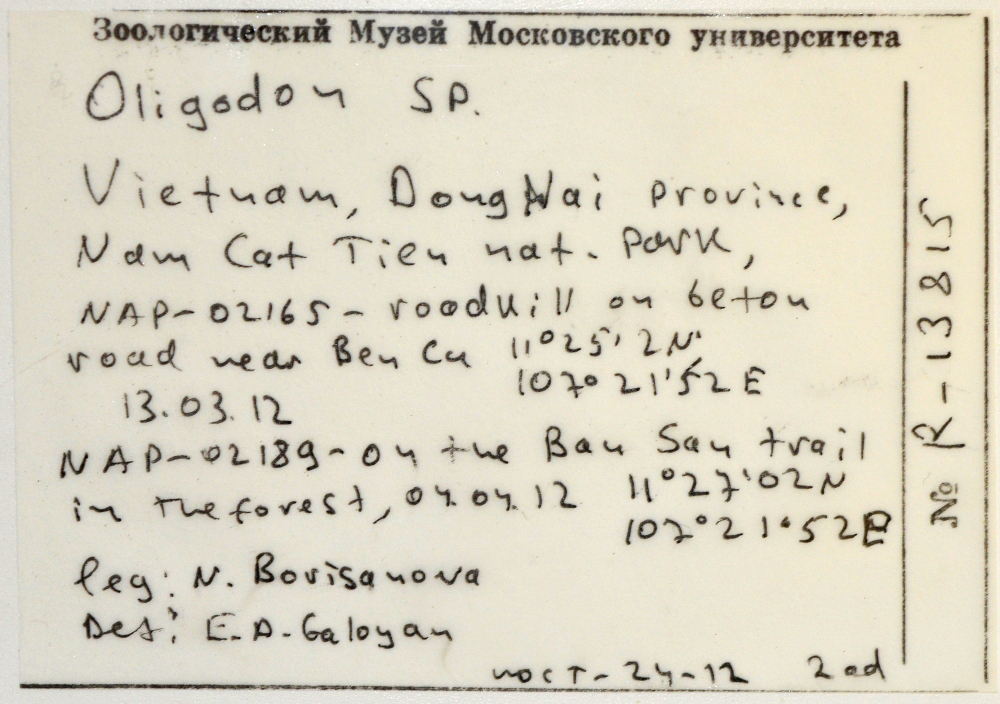 Зоологический Музей Московского университета
Oligodon sp.
Vietnam, Dong Nai province,
Nam Cat Tien nat. park,
NAP-02165 - roadkill on beton
road near Ben Cu 11°25'2N
107°21'52E
13.03.12
NAP-02189 - on the Bau Sau trail
in the forest, 04.04.12 11°27'02N
107°21'52E
leg: N. Borisanova
Det: E.A. Galoyan
пост-24-12 2ad
№ R-13815